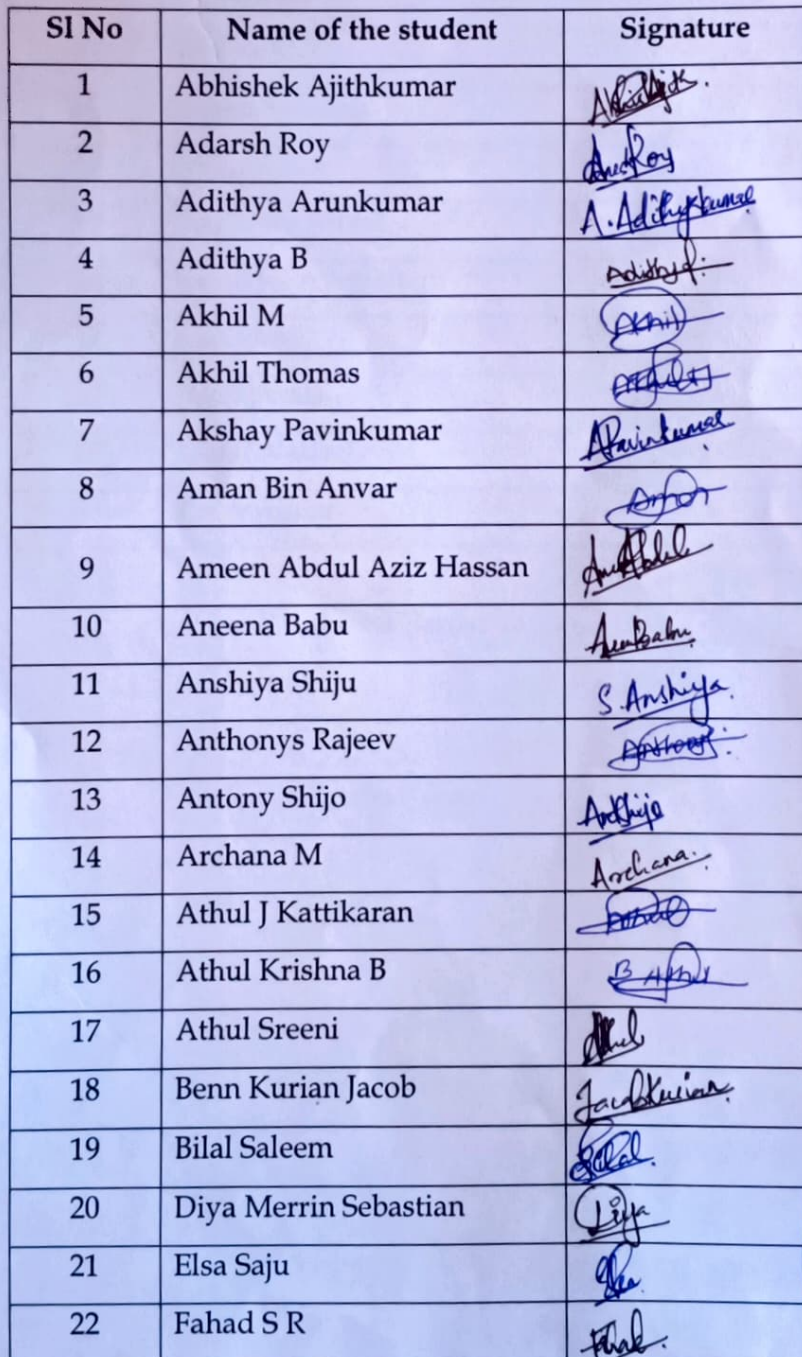 Sl No Name of the student Signature
1 Abhishek Ajithkumar
2 Adarsh Roy
3 Adithya Arunkumar A. Adithykumar
4 Adithya B Adithya
5 Akhil M Akhil
6 Akhil Thomas
7 Akshay Pavinkumar APavinkumar
8 Aman Bin Anvar
9 Ameen Abdul Aziz Hassan
10 Aneena Babu
11 Anshiya Shiju S. Anshiya.
12 Anthonys Rajeev
13 Antony Shijo
14 Archana M Archana.
15 Athul J Kattikaran
16 Athul Krishna B
17 Athul Sreeni Athul
18 Benn Kurian Jacob JacobKurian
19 Bilal Saleem Bilal.
20 Diya Merrin Sebastian Diya
21 Elsa Saju
22 Fahad S R Fahad.